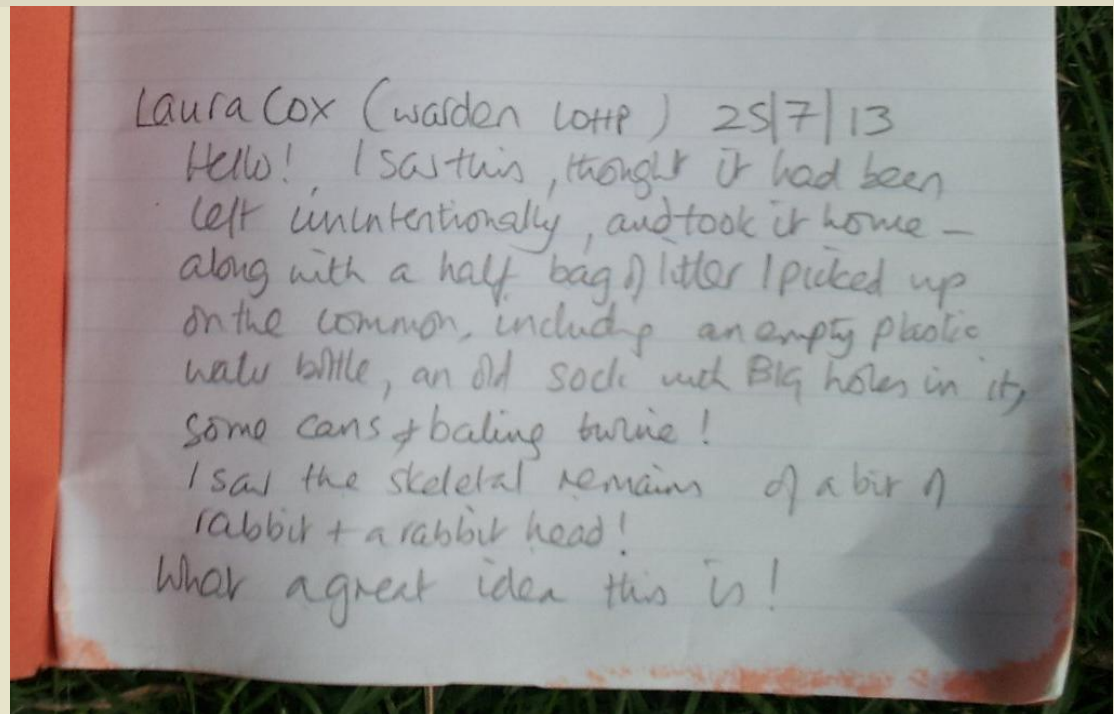 Laura Cox (warden LOHP) 25/7/13
Hello! I saw this, thought it had been
left unintentionally, and took it home –
along with a half bag of litter I picked up
on the common, including an empty plastic
water bottle, an old sock with BIG holes in it,
some cans & baling twine!
I saw the skeletal remains of a bit of
rabbit + a rabbit head!
What a great idea this is!